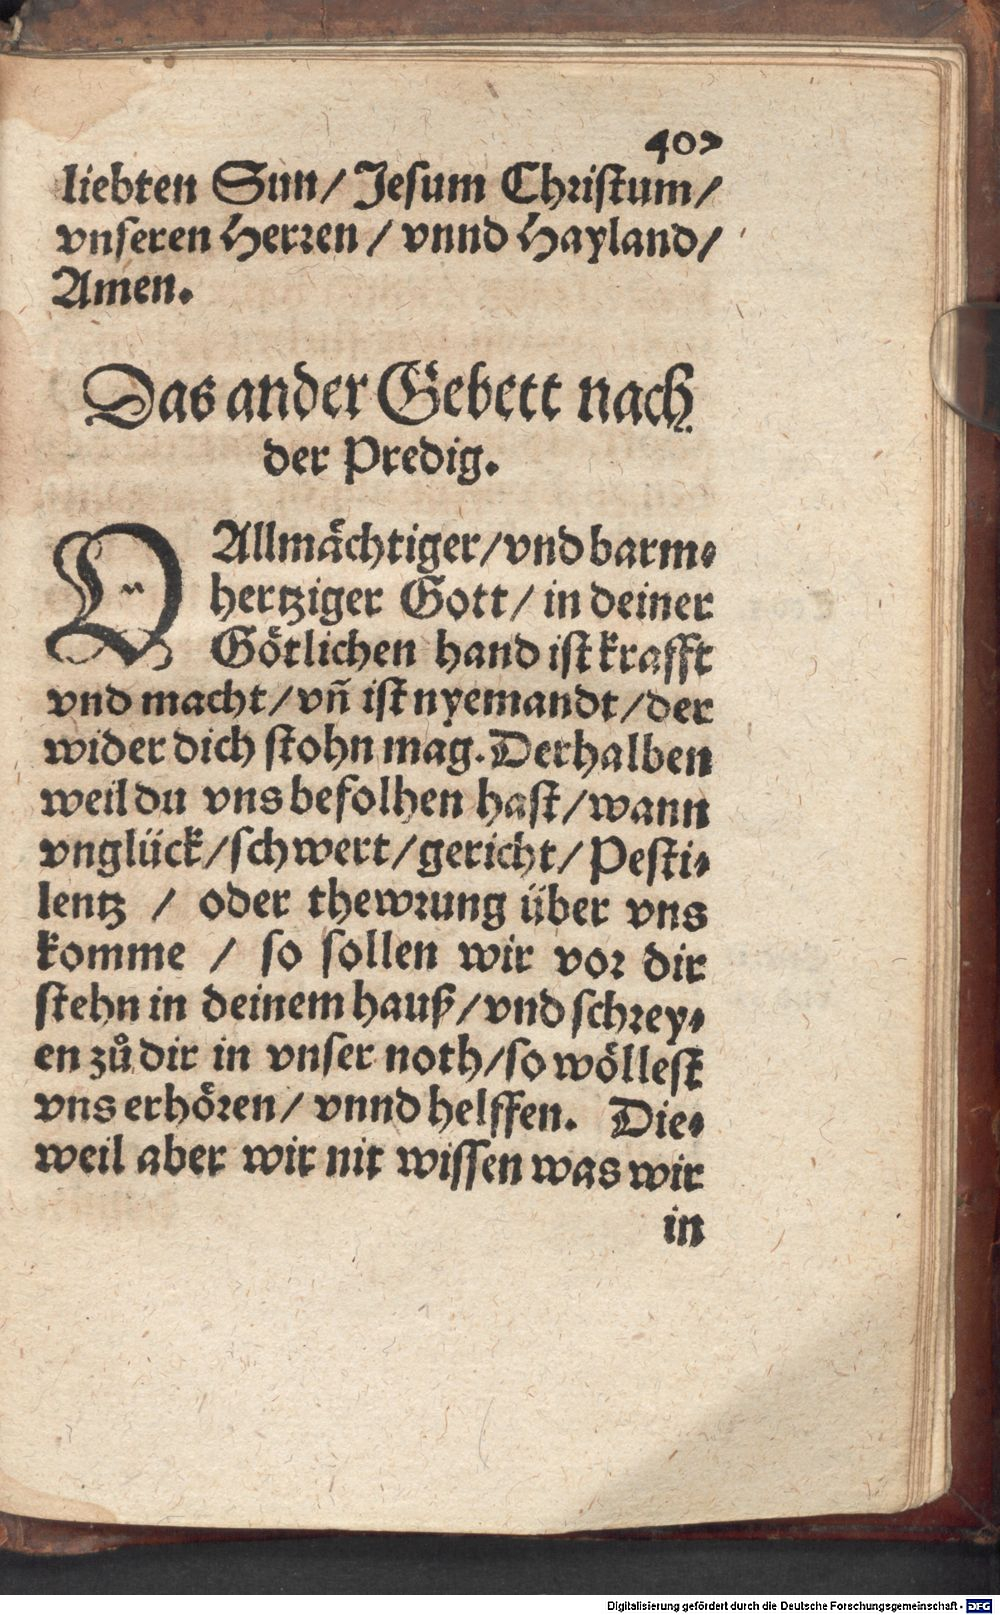 407
liebten Sun/ Jesum Christum/
vnseren Herren / vnnd Hayland/
Amen.
Das ander Gebett nach
der Predig.
O Allmächtiger/vnd barm⸗
hertziger Gott/ in deiner
Götlichen hand ist krafft
vnd macht/vñ ist nyemandt/der
wider dich stohn mag. Derhalben
weil du vns befolhen hast/wann
vnglück/schwert/gericht/Pesti⸗
lentz / oder thewrung über vns
komme / so sollen wir vor dir
stehn in deinem hauß/vnd schrey⸗
en zů dir in vnser noth/so wöllest
vns erhören/ vnnd helffen. Die⸗
weil aber wir nit wissen was wir
in
Digitalisierung gefördert durch die Deutsche Forschungsgemeinschaft - DFG